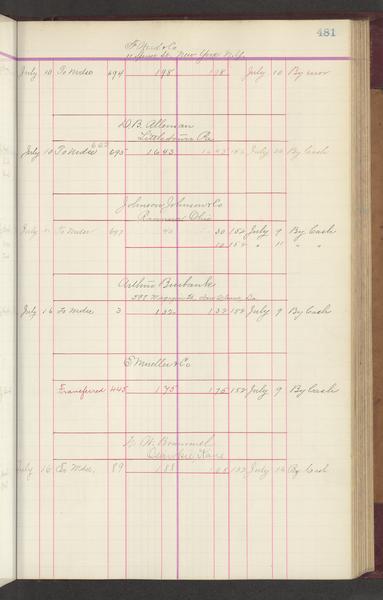 481
& Co
New York N.Y.
July 10 To Mdse 694 1.98 1.98 July 10 By error
D. B. Alleman
Littlestown Pa
July 10 To Mdse 695 16.43 16.43 152 July By Cash
Johnson Johnson & Co
Ohio
July To Mdse 697 30 152 July 9 By Cash
10 152 " 11 " "
Arthur Burbank
Magazine St. New Orleans La
July 16 To Mdse 3 1.32 1.32 152 July 9 By Cash
E Mueller & Co
Transferred 445 1.75 1.75 152 July 9 By Cash
W. Brummel
Kans
July 16 To Mdse. 89 1.88 1.88 152 July 14 By Cash